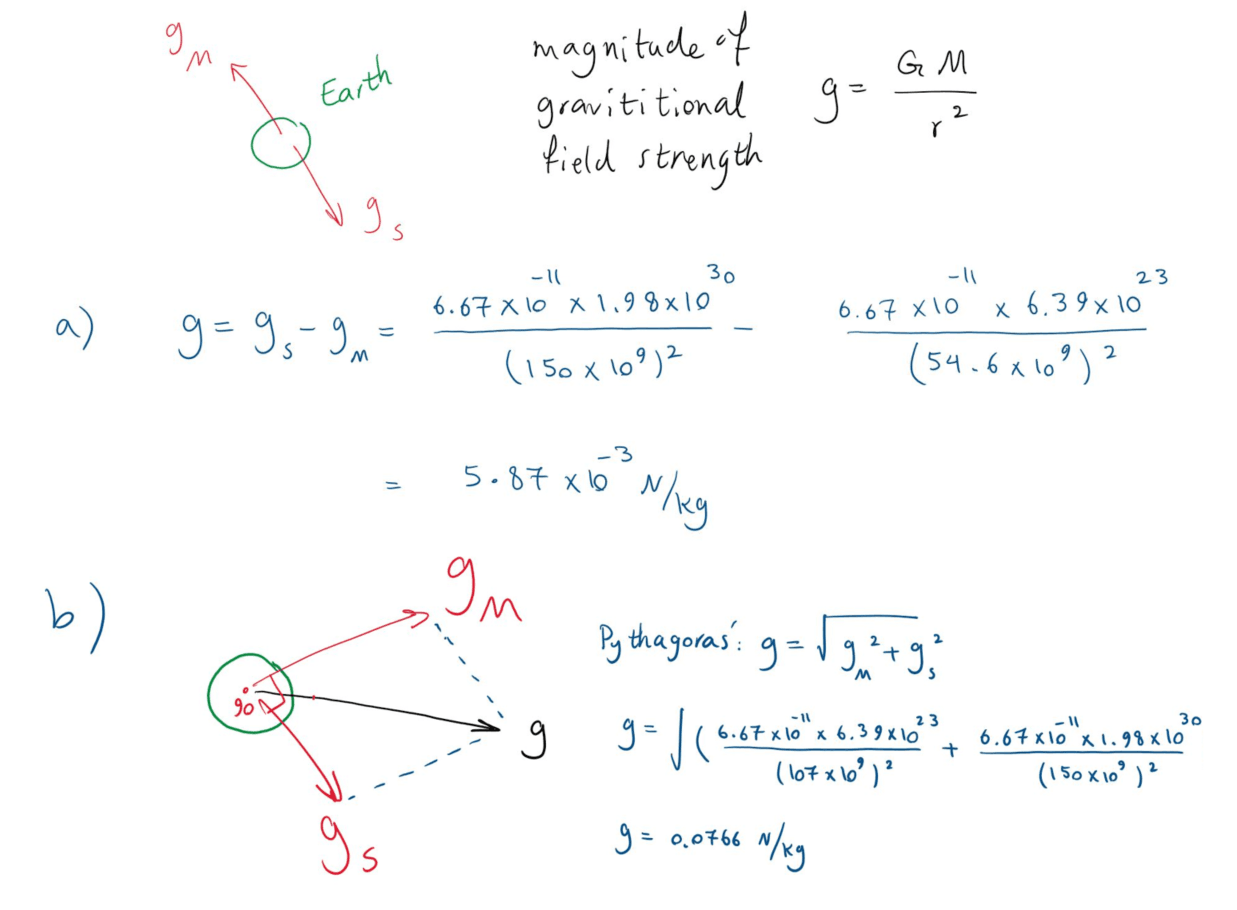 g_M
Earth
g_s
magnitude of
gravititional
field strength
g = G M / r^2
a) g = g_s - g_M = 6.67 × 10^-11 × 1.98 × 10^30 / (150 × 10^9)^2 - 6.67 × 10^-11 × 6.39 × 10^23 / (54.6 × 10^9)^2
= 5.87 × 10^-3 N/kg
b)
g_M
90
g
g_s
Pythagoras': g = √(g_M^2 + g_s^2)
g = √( (6.67 × 10^-11 × 6.39 × 10^23 / (107 × 10^9)^2 + 6.67 × 10^-11 × 1.98 × 10^30 / (150 × 10^9)^2
g = 0.0766 N/kg